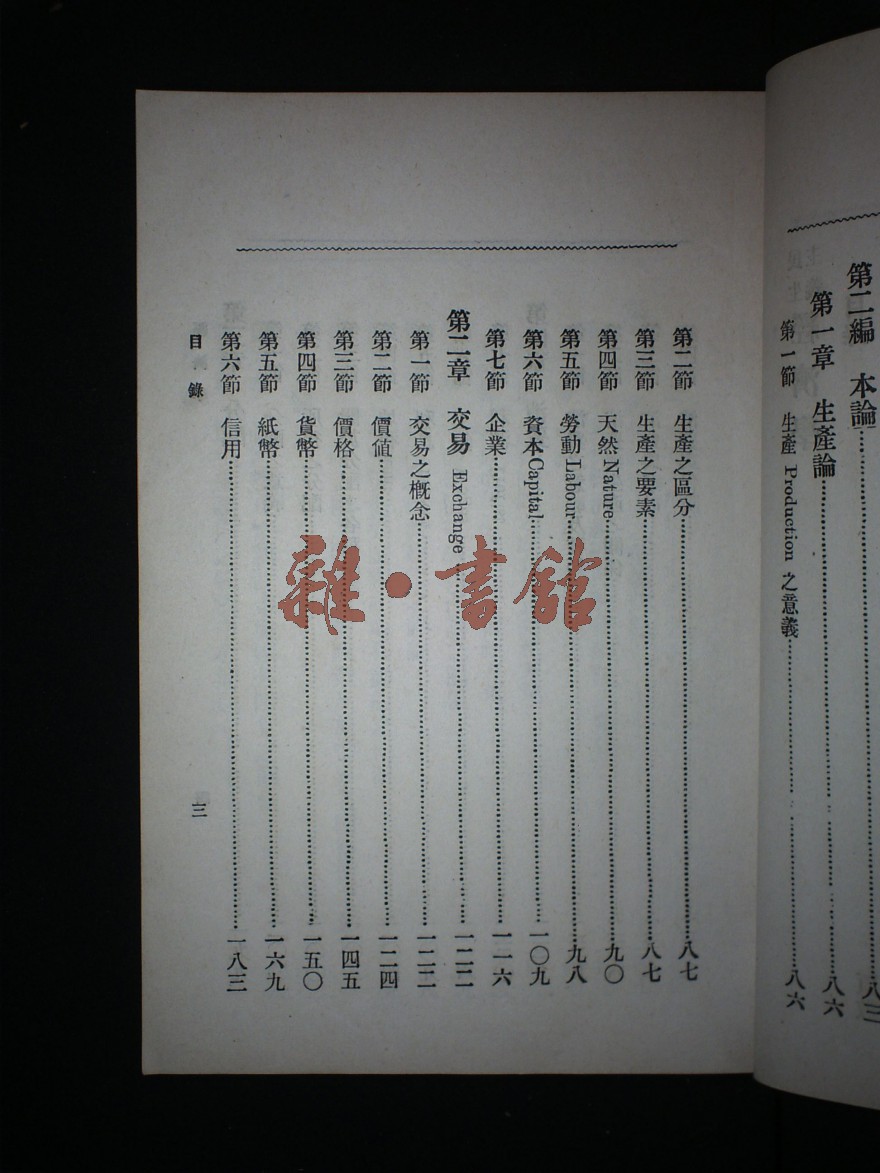 第二編 本論 八三
第一章 生產論 八六
第一節 生產 Production 之意義 八六
第二節 生產之區分 八七
第三節 生產之要素 八七
第四節 天然 Nature 九〇
第五節 勞動 Labour 九八
第六節 資本 Capital 一〇九
第七節 企業 一一六
第二章 交易 Exchange 一二二
第一節 交易之概念 一二二
第二節 價值 一二四
第三節 價格 一四五
第四節 貨幣 一五〇
第五節 紙幣 一六九
第六節 信用 一八三
目錄 三
雜·書館